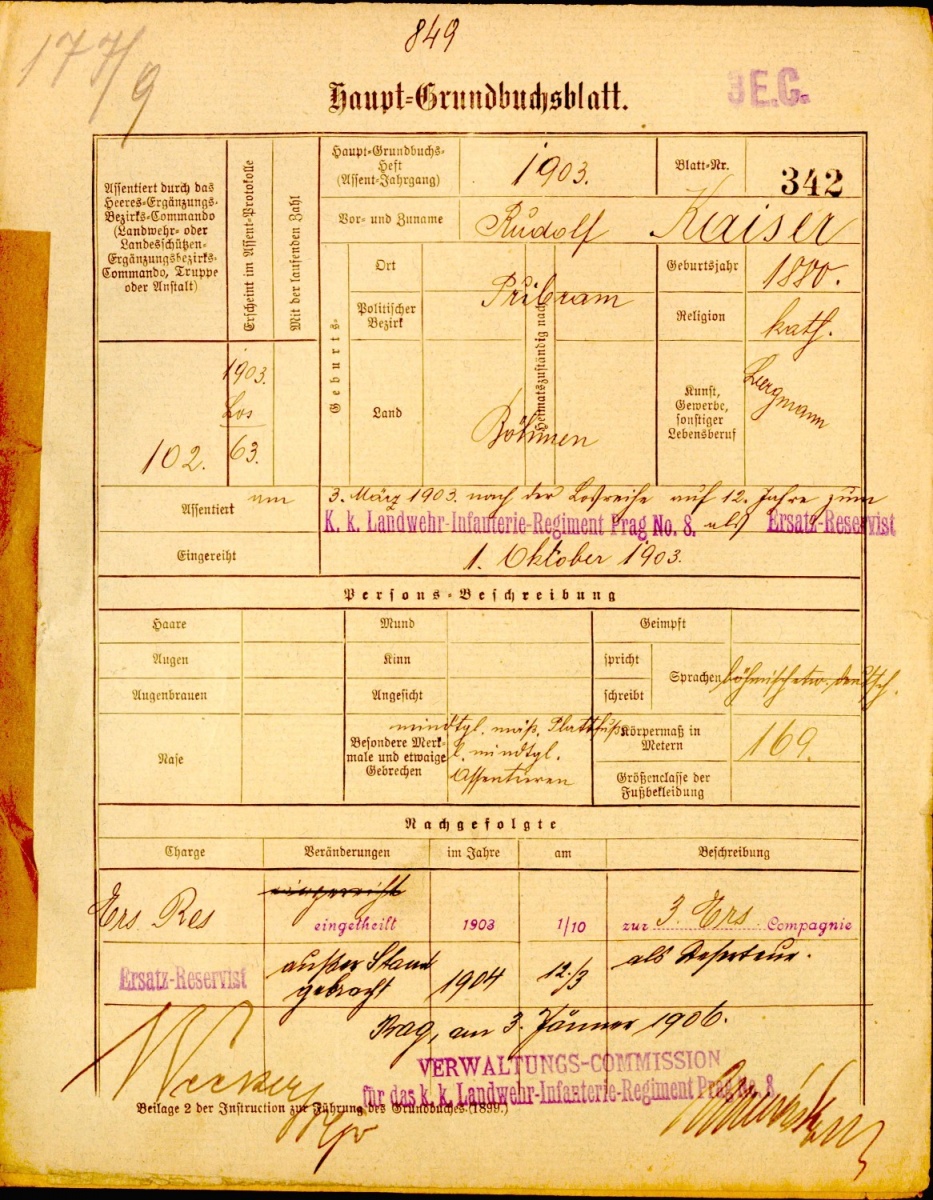 849
177/9
Haupt-Grundbuchsblatt.
3 E.C.
Assentiert durch das
Heeres-Ergänzungs-
Bezirks-Commando
(Landwehr- oder
Landesschützen-
Ergänzungsbezirks-
Commando, Truppe
oder Anstalt)
Erscheint im Assent-Protokolle
Mit der laufenden Zahl
102.
1903.
Los
63.
Haupt-Grundbuchs-
Heft
(Assent-Jahrgang)
1903.
Blatt-Nr.
342
Vor- und Zuname
Rudolf Kaiser
Geburts-
Ort
Politischer
Bezirk
Land
Heimatszuständig nach
Přibram
Böhmen
Geburtsjahr
1880.
Religion
kath.
Kunst,
Gewerbe,
sonstiger
Lebensberuf
Bergmann
Assentiert am
3. März 1903. nach der Losreihe auf 12. Jahre zum
K. k. Landwehr-Infanterie-Regiment Prag No. 8. als Ersatz-Reservist
Eingereiht
1. Oktober 1903.
Persons-Beschreibung
Haare
Mund
Geimpft
Augen
Kinn
spricht
Augenbrauen
Angesicht
schreibt
Sprachen
böhmisch etw. deutsch.
Nase
Besondere Merk-
male und etwaige
Gebrechen
mindtgl. mäß. Plattfuß
mindtgl.
Assentieren
Körpermaß in
Metern
169.
Größenclasse der
Fußbekleidung
Nachgefolgte
Charge Veränderungen im Jahre am Beschreibung
eingereicht
Ers. Res eingetheilt 1903 1/10 zur 3. Ers. Compagnie
Ersatz-Reservist außer Stand gebracht 1904 12/3 als Deserteur.
Prag, am 3. Jänner 1906.
VERWALTUNGS-COMMISSION
für das k. k. Landwehr-Infanterie-Regiment Prag No. 8
Beilage 2 der Instruction zur Führung des Grundbuches (1899.)